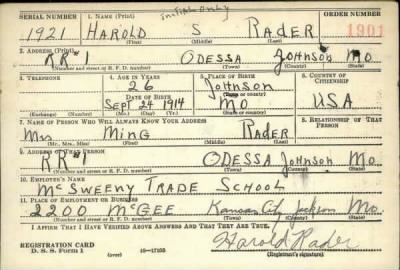 SERIAL NUMBER 1. NAME (Print) initial only ORDER NUMBER
1921 HAROLD S RADER 1901
(First) (Middle) (Last)
2. ADDRESS (Print)
RR#1 ODESSA Johnson Mo
(Number and street or R. F. D. number) (Town) (County) (State)
3. TELEPHONE 4. AGE IN YEARS 5. PLACE OF BIRTH 6. COUNTRY OF CITIZENSHIP
26 Johnson
DATE OF BIRTH (Town or county)
Sept 24 1914 MO USA
(Exchange) (Number) (Mo.) (Day) (Yr.) (State or country)
7. NAME OF PERSON WHO WILL ALWAYS KNOW YOUR ADDRESS 8. RELATIONSHIP OF THAT PERSON
Mrs Ming RADER
(Mr., Mrs., Miss) (First) (Middle) (Last)
9. ADDRESS OF THAT PERSON
RR#1 ODESSA Johnson Mo.
(Number and street or R. F. D. number) (Town) (County) (State)
10. EMPLOYER'S NAME
McSweeny TRADE SCHOOL
11. PLACE OF EMPLOYMENT OR BUSINESS
2200 McGEE Kansas City Jackson Mo
(Number and street or R. F. D. number) (Town) (County) (State)
I AFFIRM THAT I HAVE VERIFIED ABOVE ANSWERS AND THAT THEY ARE TRUE.
REGISTRATION CARD Harold Rader
D. S. S. Form 1 (over) 16—17105 (Registrant's signature)